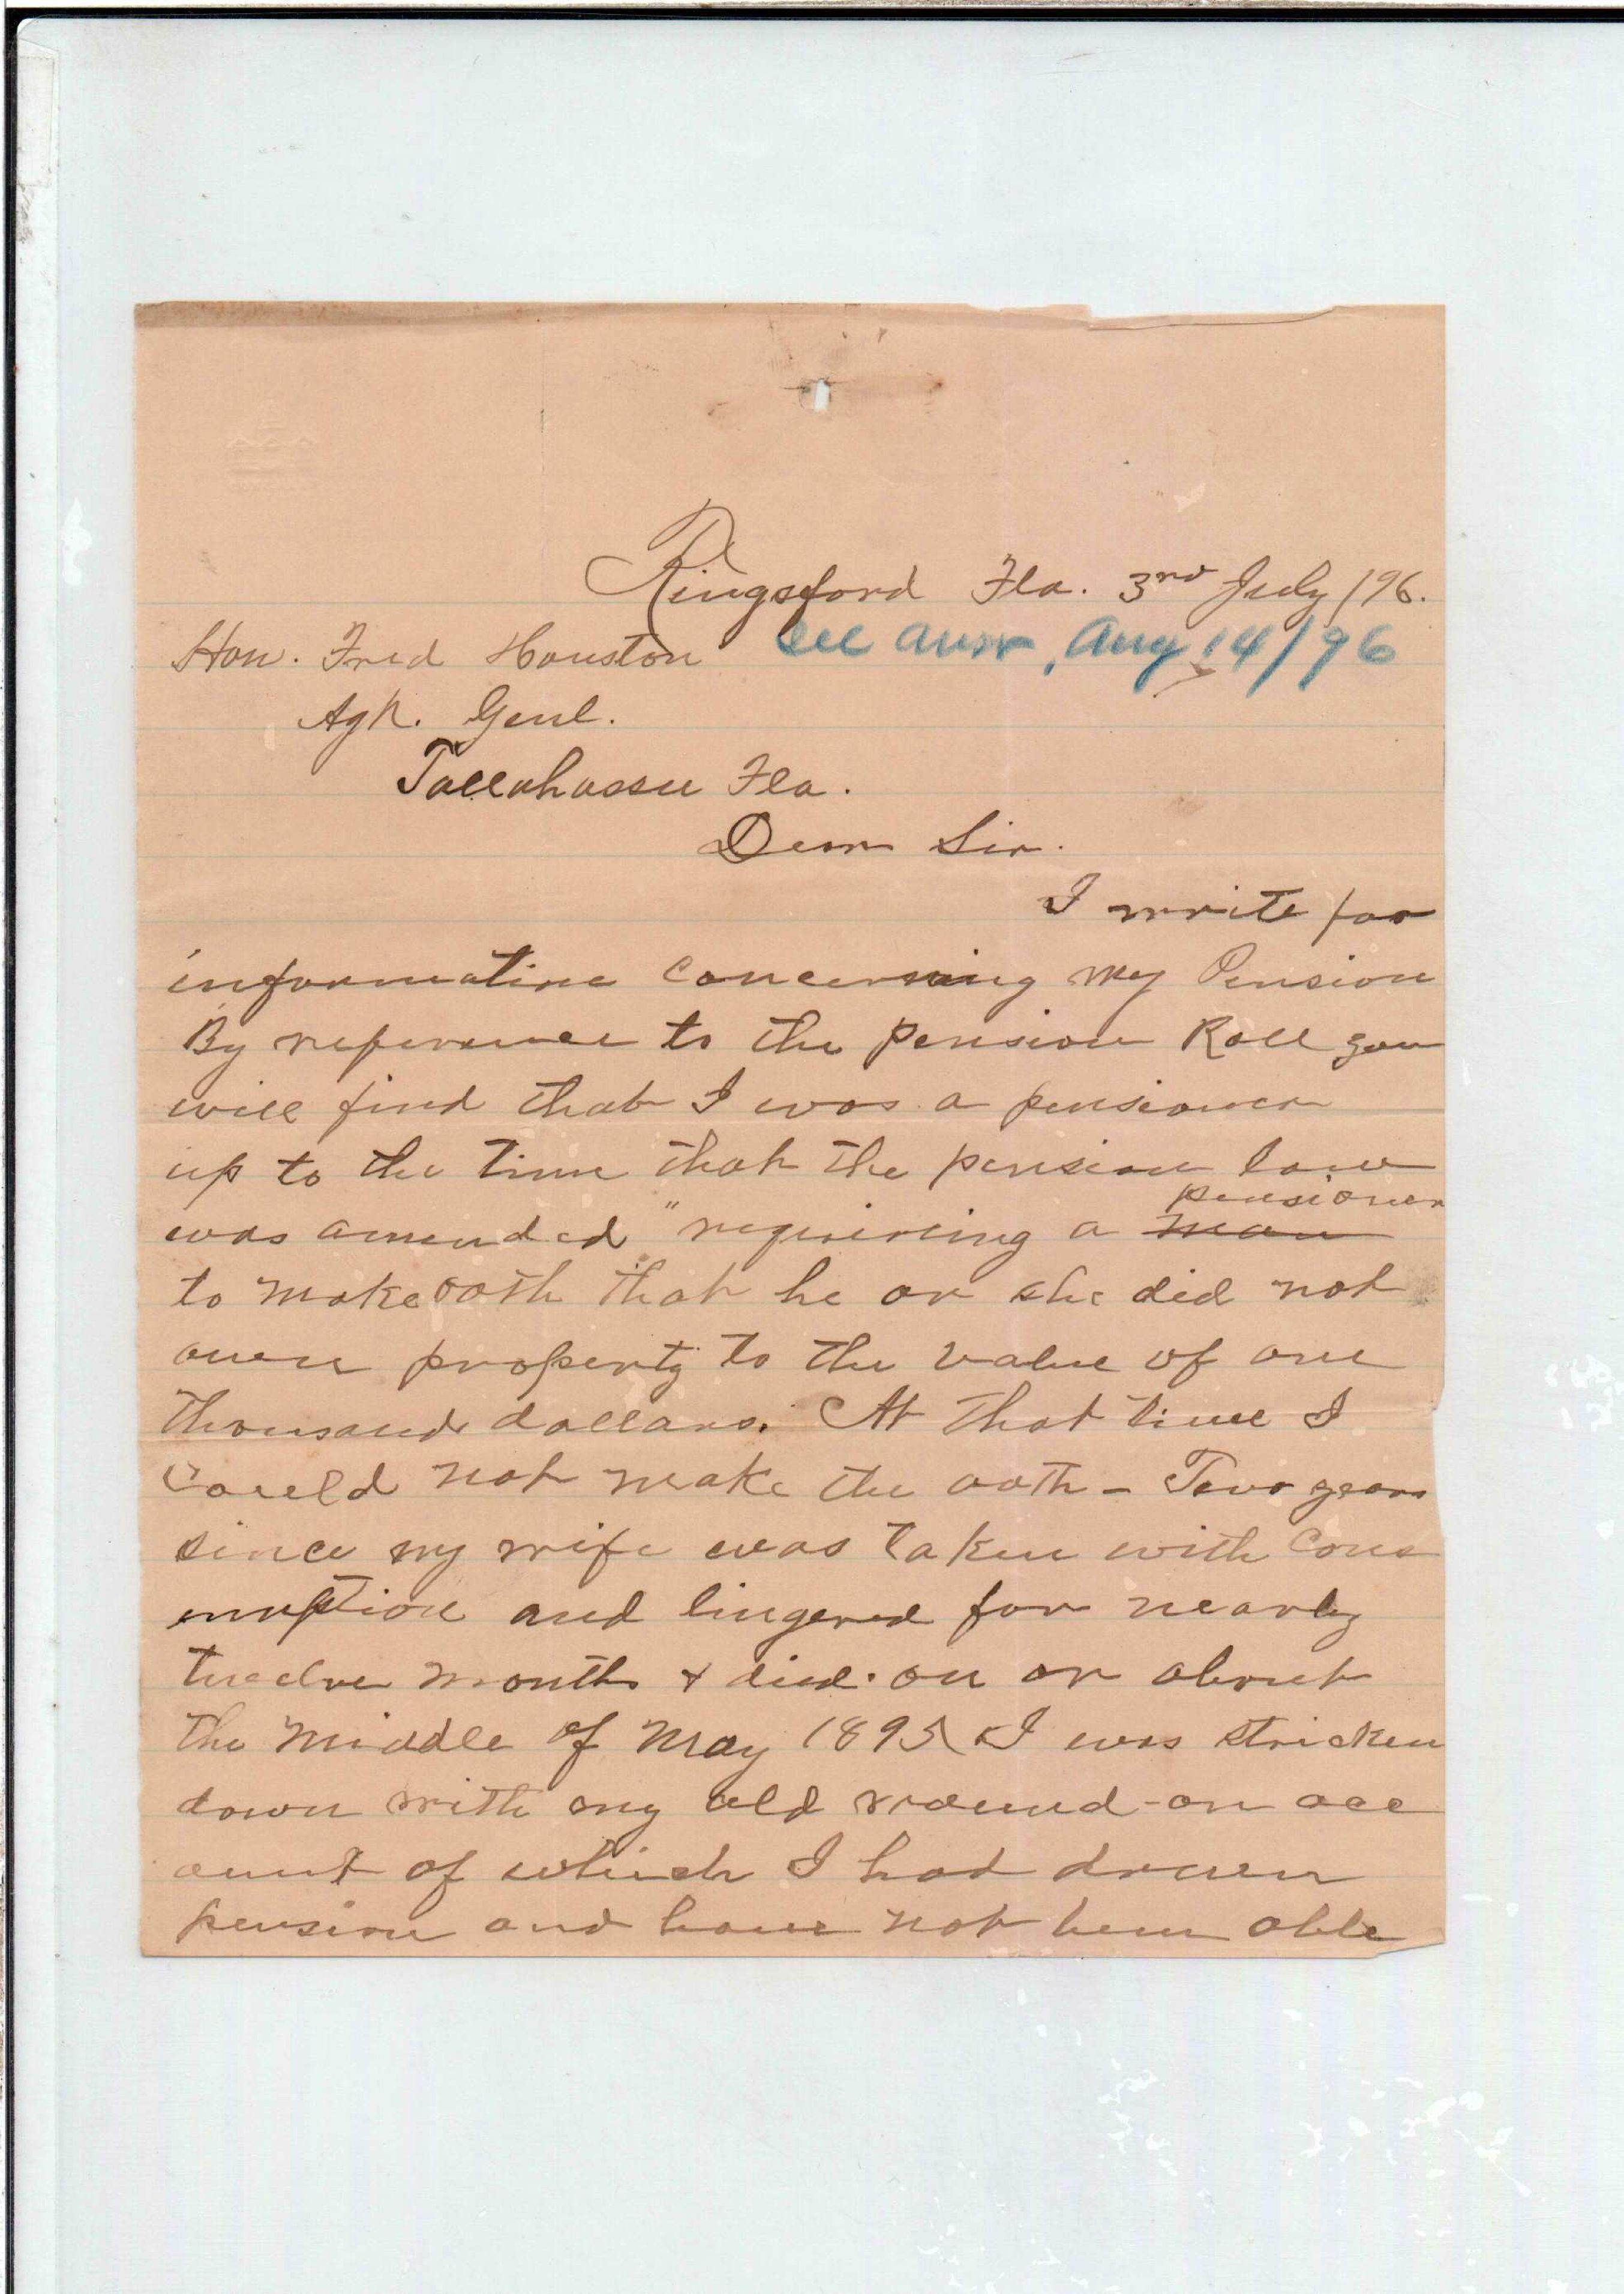 Kingsford Fla. 3rd July /96.
See answ, Aug 14/96
Hon. Fred Houston
Agt. Genl.
Tallahassee Fla.
Dear Sir.
I write for
information concerning my Pension
By reference to the pension Roll you
will find that I was a pensioner
up to the time that the pension law
pensioner
was amended "requireing a man
to make oath that he or she did not
own property to the value of one
thousand dollars. At that time I
Could not make the oath - Two years
since my wife was taken with Cons
umption and lingered for nearly
twelve months & died. on or about
the middle of May 1895 I was stricken
down with my old wound - on acc
ount of which I had drawn
pension and have not been able